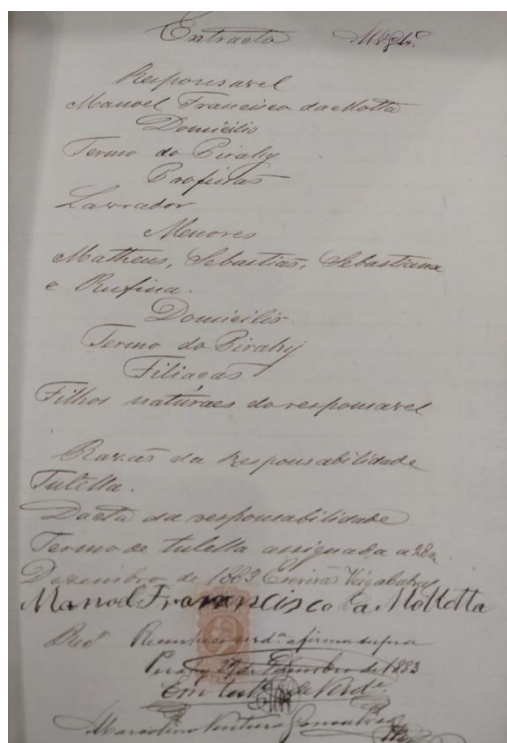 Extracto
Responsavel
Manoel Francisco da Motta
Domicilio
Termo do Pirahy
Profissão
Lavrador
Menores
Matheus, Sebastião, Sebastiana
e Rufina.
Domicilio
Termo do Pirahy
Filiação
Filhos naturaes do responsavel
Razão da Responsabilidade
Tutella.
Dacta da responsabilidade
Termo de tutella assignada a 28 de
Dezembro de 1883 Escrivão
Manoel Franncisco da Mottta
Reconheço verd.ª a firma supra
Pirahy 29 de Dezembro de 1883
Em test.º de Verd.e
Marcolino Ventura Gonçalves